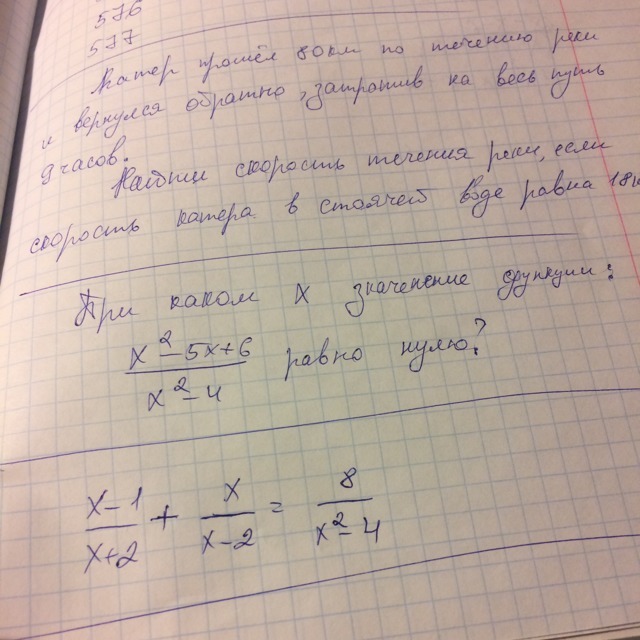 576
577
Катер прошёл 80км по течению реки
и вернулся обратно, затратив на весь путь
9 часов.
Найти скорость течения реки, если
скорость катера в стоячей воде равна 18к
При каком x значение функции:
x²-5x+6 / x²-4 равно нулю?
x-1 / x+2 + x / x-2 = 8 / x²-4